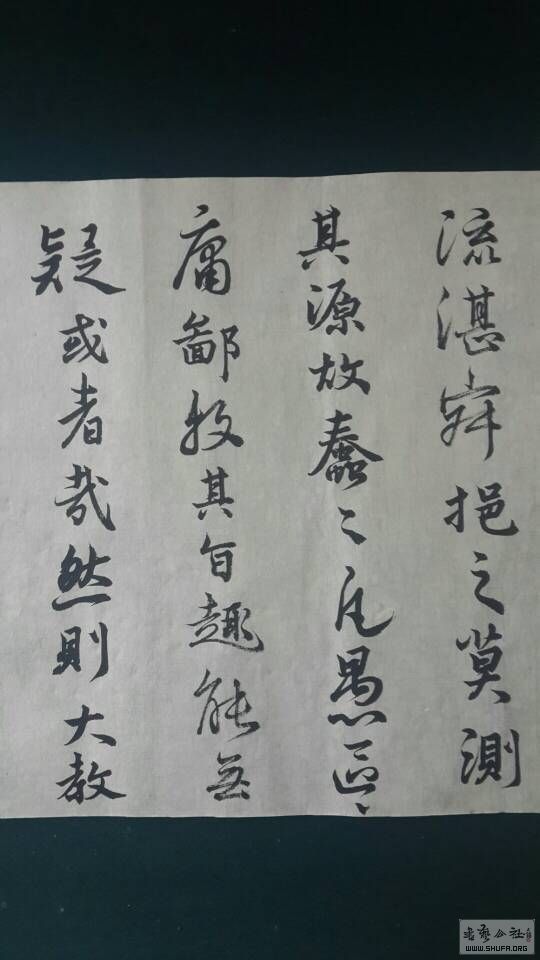 流湛寂挹之莫測
其源故蠢〻凡愚區〻
庸鄙投其旨趣能無
疑或者哉然則大教
书艺公社
WWW.SHUFA.ORG